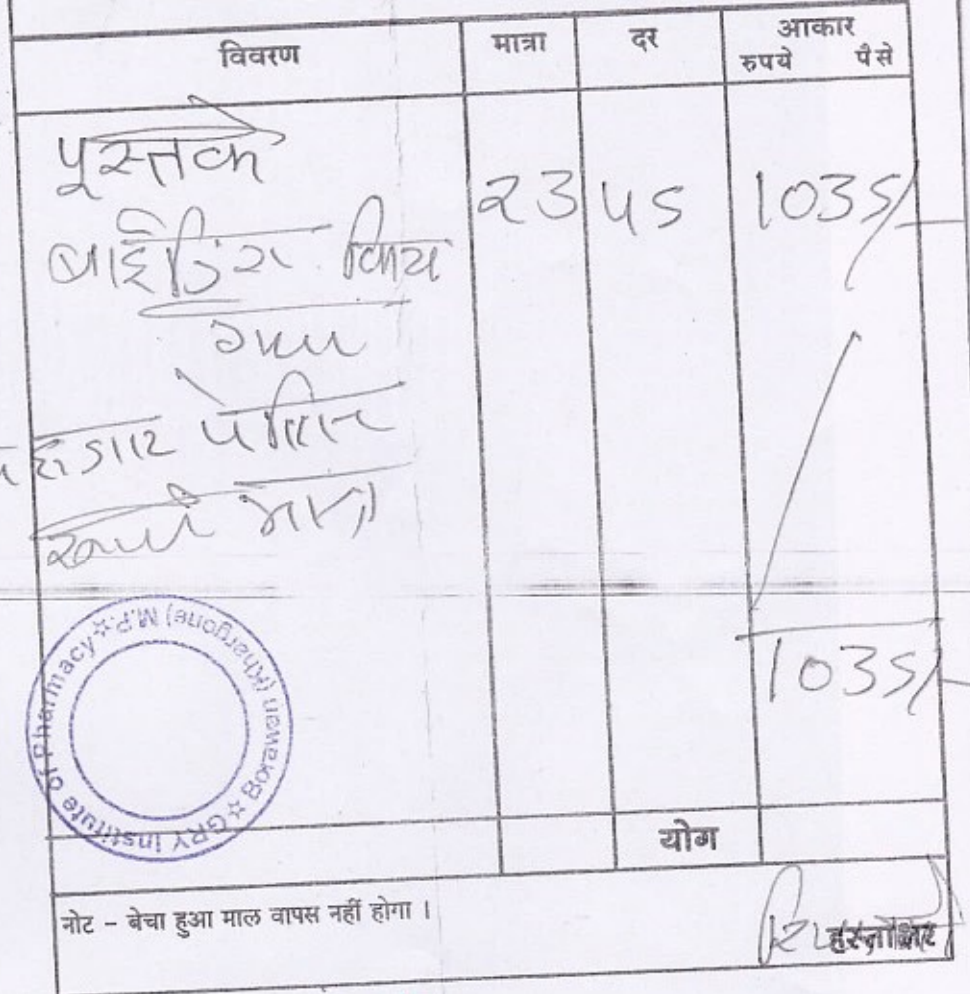 विवरण मात्रा दर आकार
रुपये पैसे
पूस्तके
बाईडिंग किया 23 45 1035/-
गया
1035/-
GRY Institute of Pharmacy ☆ Borawan (Khargone) M.P. ☆
योग
नोट - बेचा हुआ माल वापस नहीं होगा ।
हस्ताक्षर